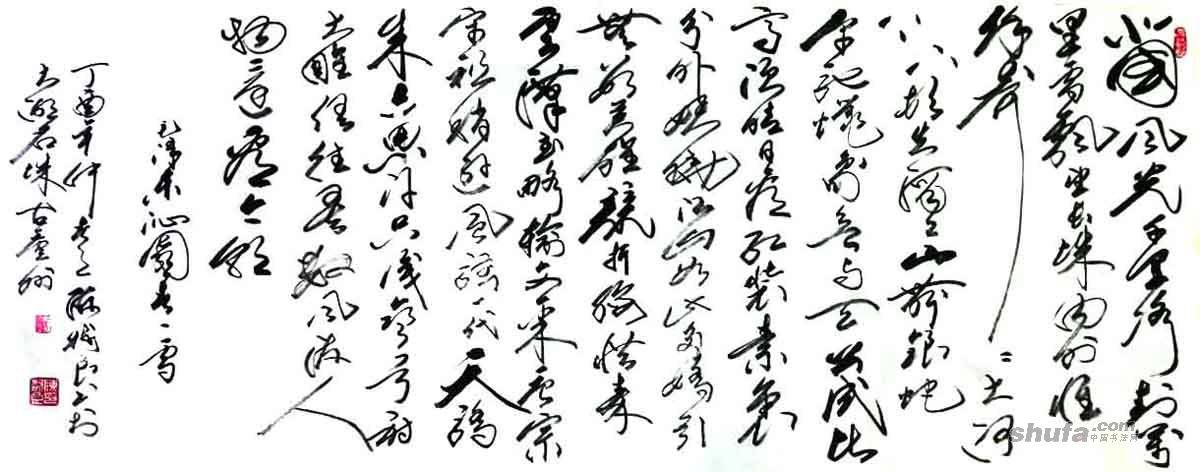 北国风光千里冰封万
里雪飘望长城内外惟
馀莽〃大河
上下顿失滔〃山舞银蛇
原驰蜡象欲与天公试比
高须晴日看红装素裹
分外妖娆江山如此多娇引
无数英雄竞折腰惜秦
皇汉武略输文采唐宗
宋祖稍逊风骚一代天骄
成吉思汗只识弯弓射
大雕俱往矣数风流人
物还看今朝
毛泽东沁园春雪
丁酉年仲春
shufa.com
中国书法网